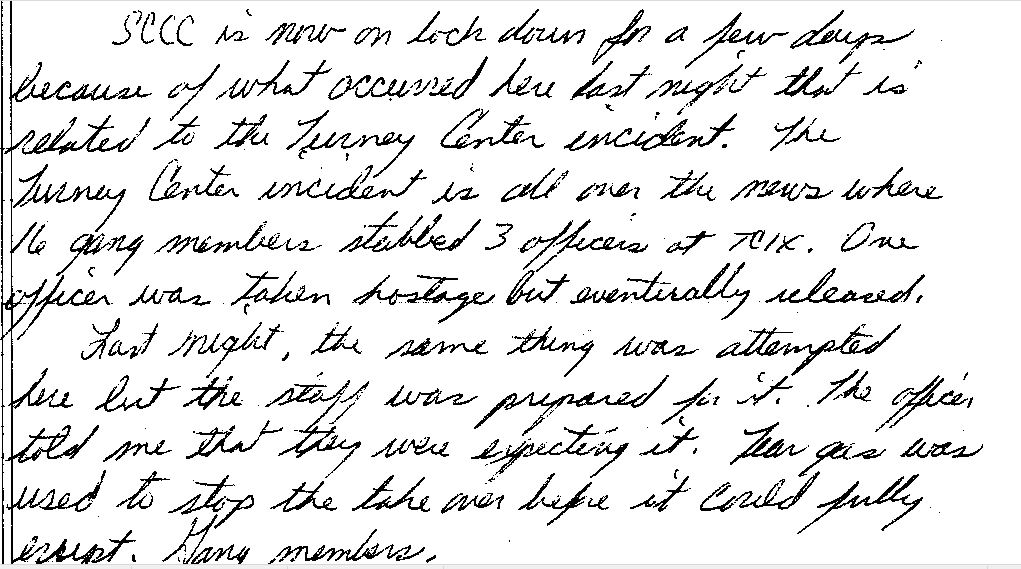 SCCC is now on lock down for a few days
because of what occurred here last night that is
related to the Turney Center incident. The
Turney Center incident is all over the news where
16 gang members stabbed 3 officers at TCIX. One
officer was taken hostage but eventually released.
Last night, the same thing was attempted
here but the staff was prepared for it. The officer
told me that they were expecting it. Tear gas was
used to stop the take over before it could fully
errupt. Gang members.